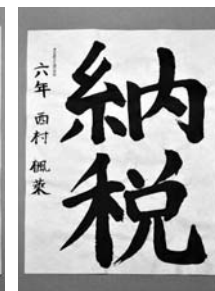 納税
六年 西村 楓菜